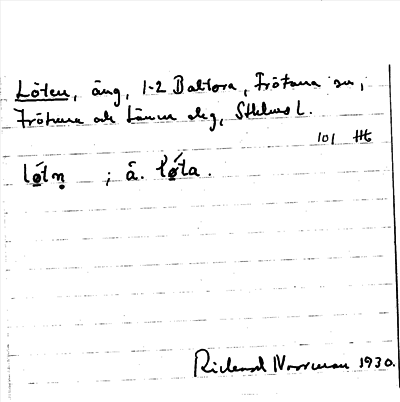 Löten, äng, 1-2 Baltora, Frötuna sn,
Frötuna och Länna skg, Sthlms l.
101 Ht
lǿ̣tn̥ ; å. lǿ̣ta.
Rickard Norrman 1930.